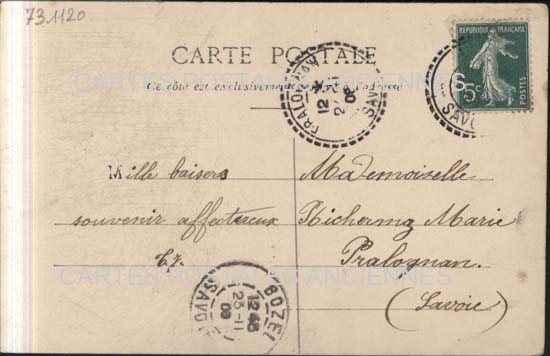 73.1120
CARTE POSTALE
Ce côté est exclusivement réservé à l'adresse
REPUBLIQUE FRANÇAISE
5c
POSTES
PRALOGNAN
12
2
08
SAVOIE
SAVO
CARTES POSTALES ANCIENNES
Mille baisers
souvenir affectueux
Mademoiselle
Marie
Pralognan.
(Savoie)
BOZEL
12 45
25-11
08
SAVOIE
CARTES POSTALES ANCIENNES